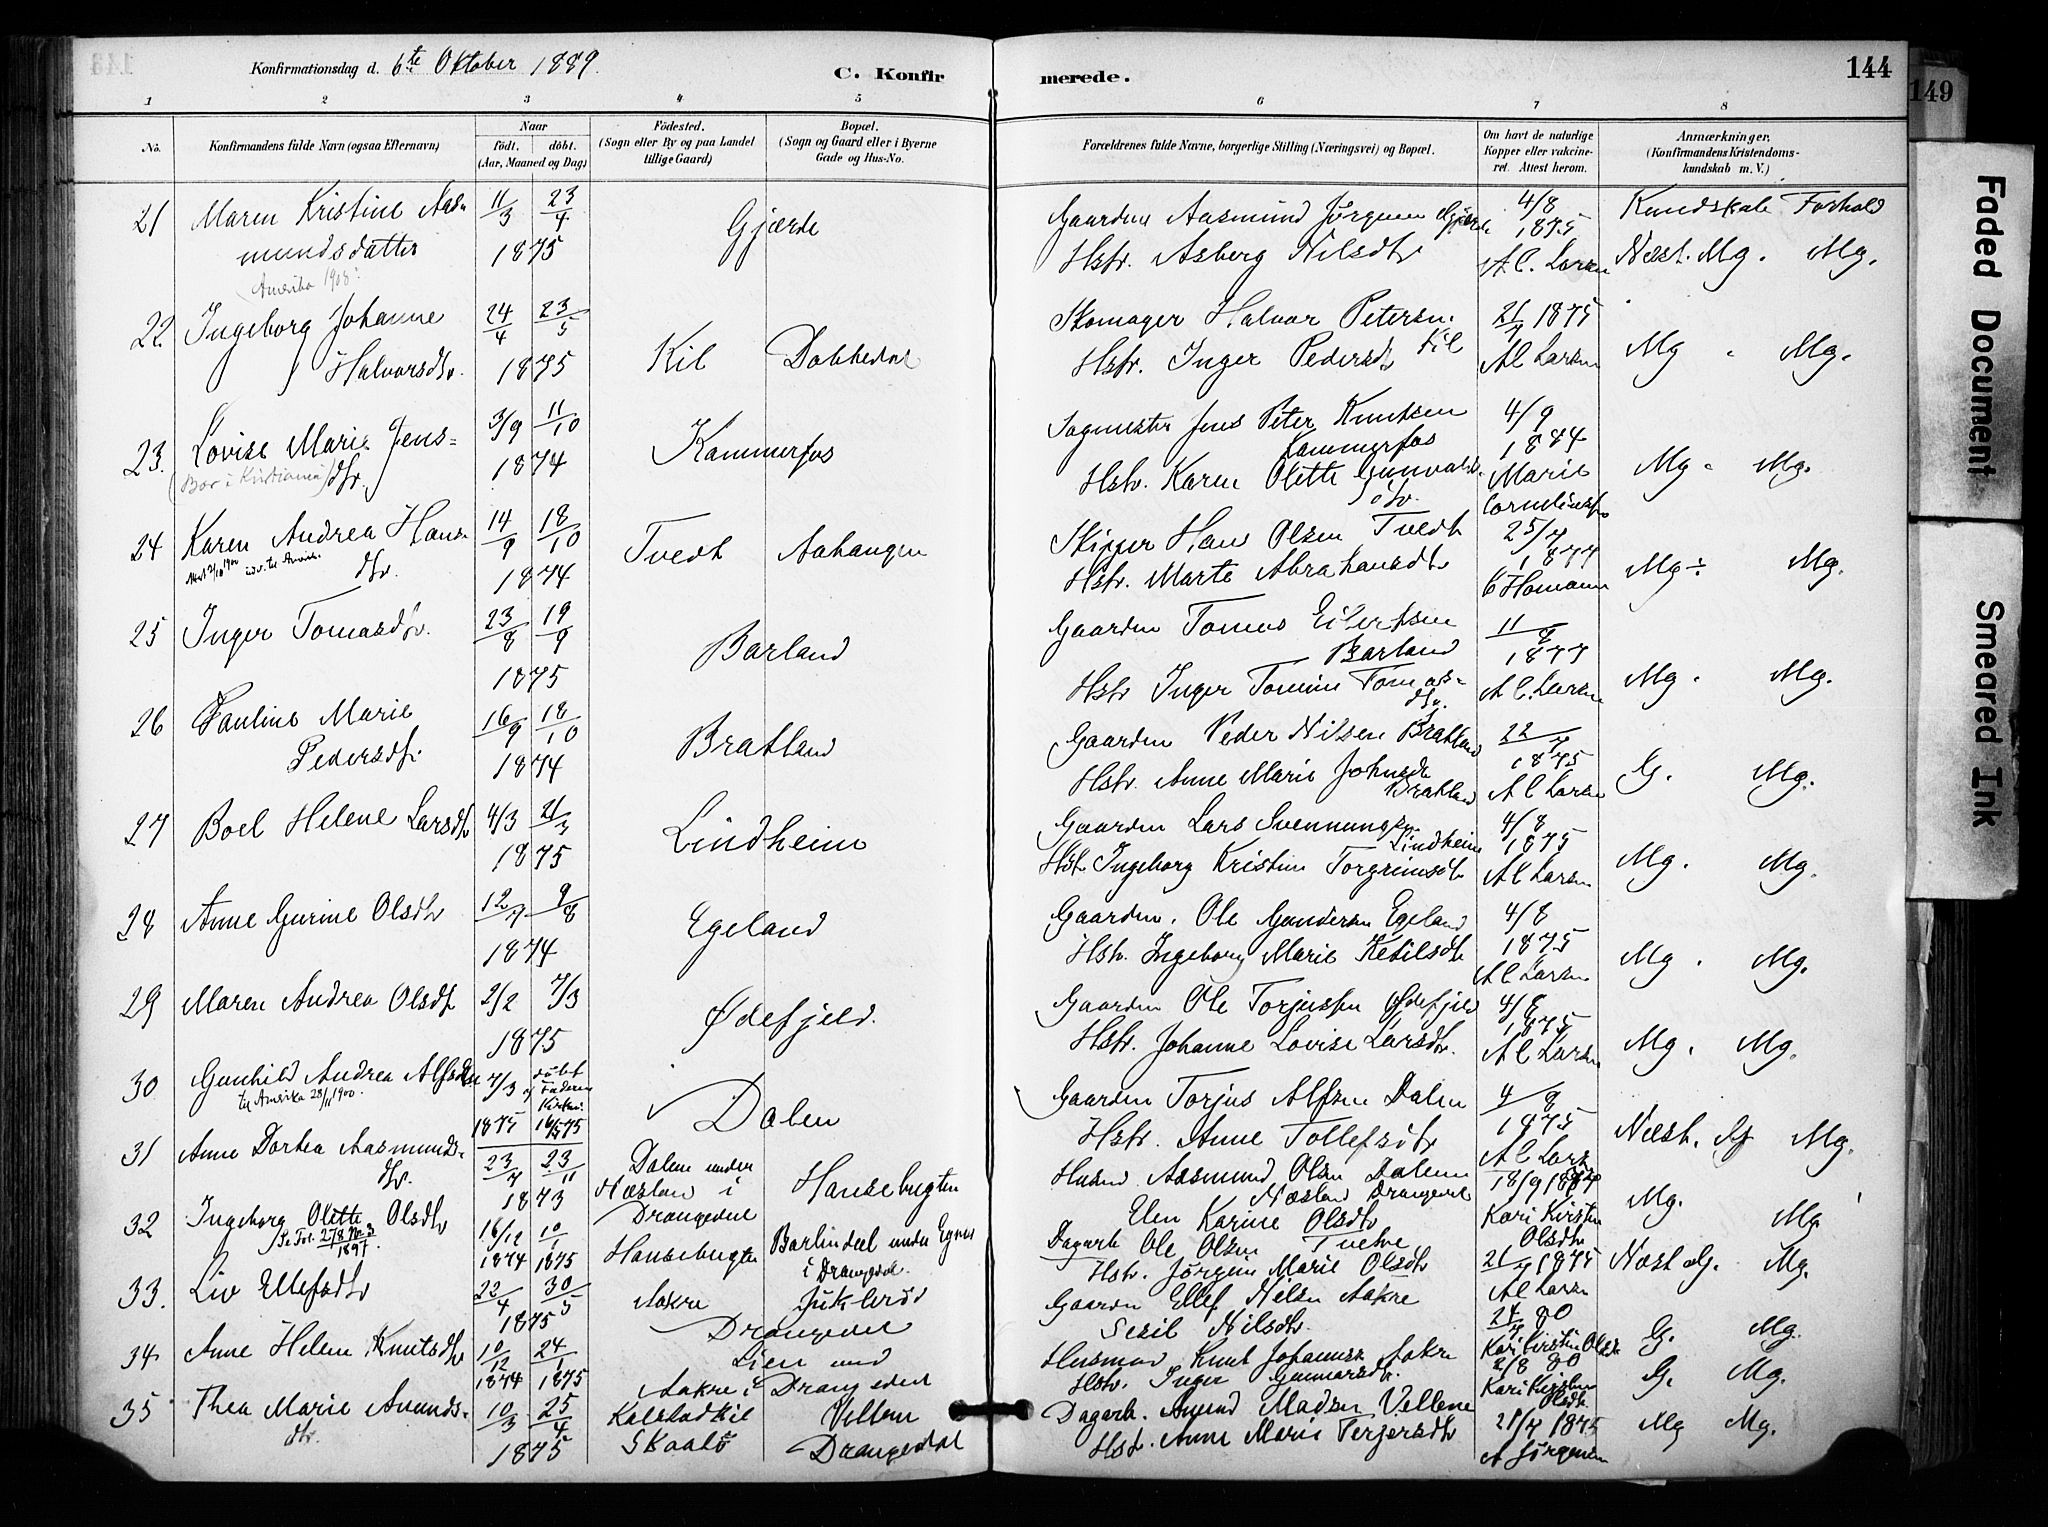 Konfirmationsdag d. 6te Oktober 1889.
C. Konfir
merede.
144
149
1 2 3 4 5 6 7 8
No.
Konfirmandens fulde Navn (ogsaa Efternavn)
Naar
födt. döbt.
(Aar, Maaned og Dag)
Födested.
(Sogn eller By og paa Landet
tillige Gaard)
Bopæl.
(Sogn og Gaard eller i Byerne
Gade og Hus-No.
Forældrenes fulde Navne, borgerlige Stilling (Næringsvei) og Bopæl.
Om havt de naturlige
Kopper eller vakcine-
ret. Attest herom.
Anmærkninger.
(Konfirmandens Kristendoms-
kundskab m. V.)
21 Maren Kristine Aas- 11/3 23/4 Gjærde Gaardm Aasmund Jørgensen Gjærde 4/8 Kundskab Forhold
mundsdatter 1875 Hstr. Asberg Nilsdtr 1875 A C. Larsen Næst. Mg. Mg.
Amerika 1908
22. Ingeborg Johanne 24/4 23/5 Kil Dobbedal Skomager Halvor Petersen Kil 21/7 1875
Halvorsdtr. 1875 Hstr. Inger Pedersdtr A C Larsen Mg. Mg.
23. Lovise Marie Jens- 3/9 11/10 Kammerfos Sagmester Jens Peter Knutsen 4/9
dtr. 1874 Kammerfos 1884
(Bor i Kristiania) Hstr. Karen Olette Gunvalds- Marie Mg. Mg.
dtr.
24 Karen Andrea Hans- 14/9 18/10 Tvedt Aahangen Skipper Hans Olsen Tvedt 25/7
dtr. 1874 Hstr. Marte Abrahamsdtr 1877 C Homann Mg ÷ Mg.
25 Inger Tomasdtr. 23/8 19/9 Barland Gaardm Tomas Eilertsen 11/8
1875 Barland 1877
Hstr Inger Tomine Tomas- A C. Larsen Mg. Mg.
dtr.
26 Pauline Marie 16/9 18/10 Bratland Gaardm Peder Nilsen Bratland 22/7
Pedersdtr. 1874 Hstr. Anne Marie Johnsdtr 1875 G. Mg.
Bratland A C Larsen
27 Boel Helene Larsdtr 4/3 21/3 Lindheim Gaardm Lars Svennungsen 4/8
1875 Lindheim 1875
Hst. Ingeborg Kristine Torgrimsdtr A C Larsen Mg. Mg.
28 Anne Gurine Olsdtr 12/7 9/8 Egeland Gaardm. Ole Gundersen Egeland 4/8
1874 Hstr. Ingeborg Marie Ketilsdtr 1875 A C Larsen Mg. Mg.
29 Maren Andrea Olsdtr 2/2 7/3 Ødefjeld. Gaardm Ole Torjussen Ødefjeld 4/8
1875 Hstr. Johanne Lovise Larsdtr. 1875 A C Larsen Mg. Mg.
30 Gunhild Andrea Alfsdtr 7/3 døbt af Faderen Dalen Gaardm Torjus Alfsen Dalen 4/8
til Amerika 28/11 1900. 1875 Hstr. Anne Tollefsdtr 1875 A C Larsen Næst. Mg.
31 Anne Dortea Aasmunds- 23/7 23/11 Dalene under Hansebugten Husmd Aasmund Olsen Dalene 18/9 1884
dtr. 1873 Næsland i Drangedal Næsland Drangedal Kari Kirstin Olsdtr Mg. Mg.
Elen Karine Olsdtr
32 Ingeborg Olette Olsdtr 16/12 10/1 Hansebugten Barlindal under Egnes Dagarb Ole Olsen Tvetve 21/7 1875
1897. 1874 1875 i Drangedal. Hstr. Jørgine Marie Olsdtr A C Larsen Næst Mg. Mg.
33. Liv Ellefsdtr 22/4 30/5 Aakre Juklerød Gaardm Ellef Nilsen Aakre 24/7 80
1875 Drangedal Sesil Nilsdtr. Kari Kirstin Olsdtr G. Mg.
34 Anne Helene Knutsdtr 10/12 24/1 Lien und Husmd Knut Johannsen Aakre 2/8 80
1874 1875 Aakre i Drangedal Hstr. Inger Gunnarsdtr. Kari Kirstin Olsdtr G. Mg.
35 Thea Marie Amunds- 10/3 25/4 Kalstadkil Vellene Dagarb. Amund Madsen Vellene 21/7 1875
dtr. 1875 Skaatø Drangedal Hstr. Anne Marie Terjersdtr A Jørgensen Mg Mg.
Faded Document
Smeared Ink